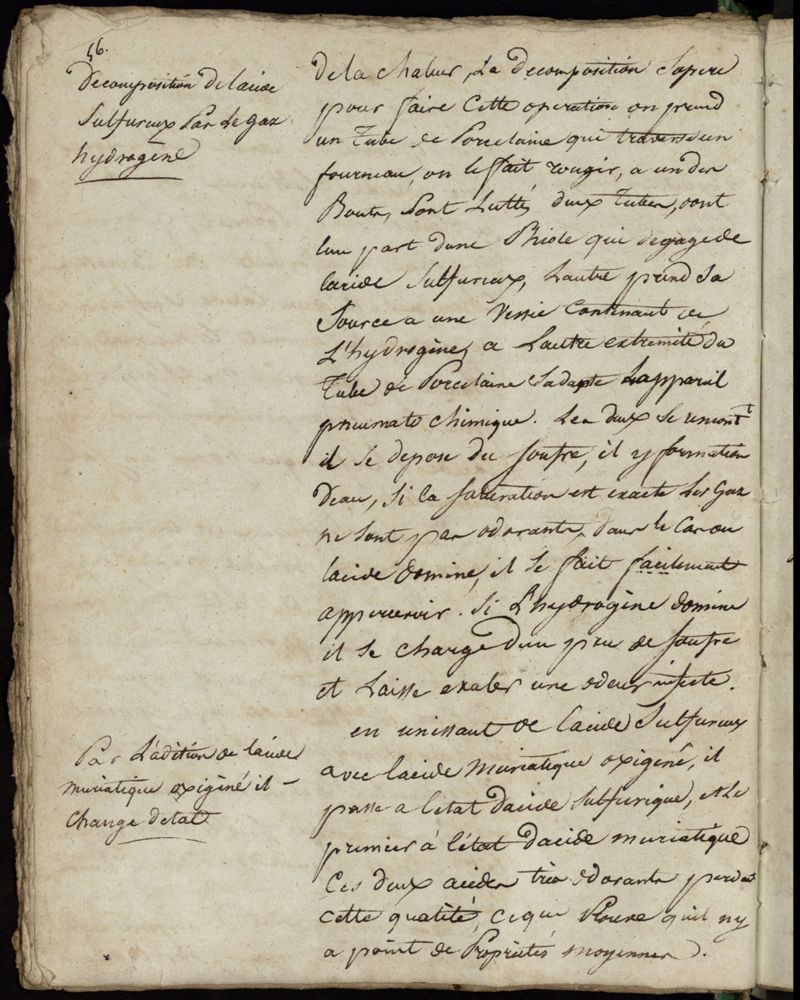 56.
Decomposition de lacide
Sulfureux Par Le gaz
hydrogène
de la chaleur, La decomposition Sopere
pour faire Cette operation on prend
un Tube de Porcelaine qui traverse un
fourneau, on le fait rougir, a un des
Bouts, Sont Luttés deux Tubes, dont
lun part dune Phiole qui degage de
lacide Sulfureux, Lautre prend Sa
Source a une Vessie Contenant de
L'hydrogène, a Lautre extremité du
Tube de Porcelaine Sadapte Lappareil
pneumato chimique. Les deux Se rencontt
il Se depose du Soufre, il y formation
Deau, Si la Saturation est exacte Les Gaz
ne Sont pas odorants, dans le Cas ou
lacide domine, il Se fait facilement
appercevoir. Si L'hydrogène domine
il Se charge dun peu de Soufre
et Laisse exaler une odeur infecte.
en unissant de lacide Sulfureux
avec lacide Muriatique oxigené, il
passe a letat dacide Sulfurique, et Le
premier à létat dacide muriatique
Ces deux acides très odorants perdent
cette qualité, Ce qui Prouve quil ny
a point de Propriétés moyennes.
Par L'adition de lacide
muriatique oxigèné il
Change detat